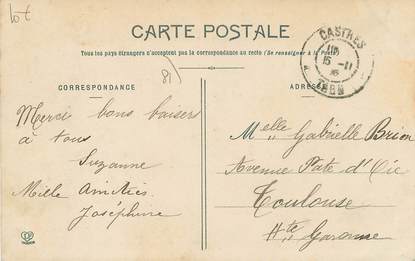 lot
CARTE POSTALE
Tous les pays étrangers n'acceptent pas la correspondance au recto (Se renseigner à la Poste)
81
CORRESPONDANCE
ADRESSE
CASTRES
15 -11
TARN
Merci bons baisers
à tous
Suzanne
Mille Amitiés
Joséphine
Melle Gabrielle Brion
Avenue Pate d'Oie
Toulouse
Hte Garonne